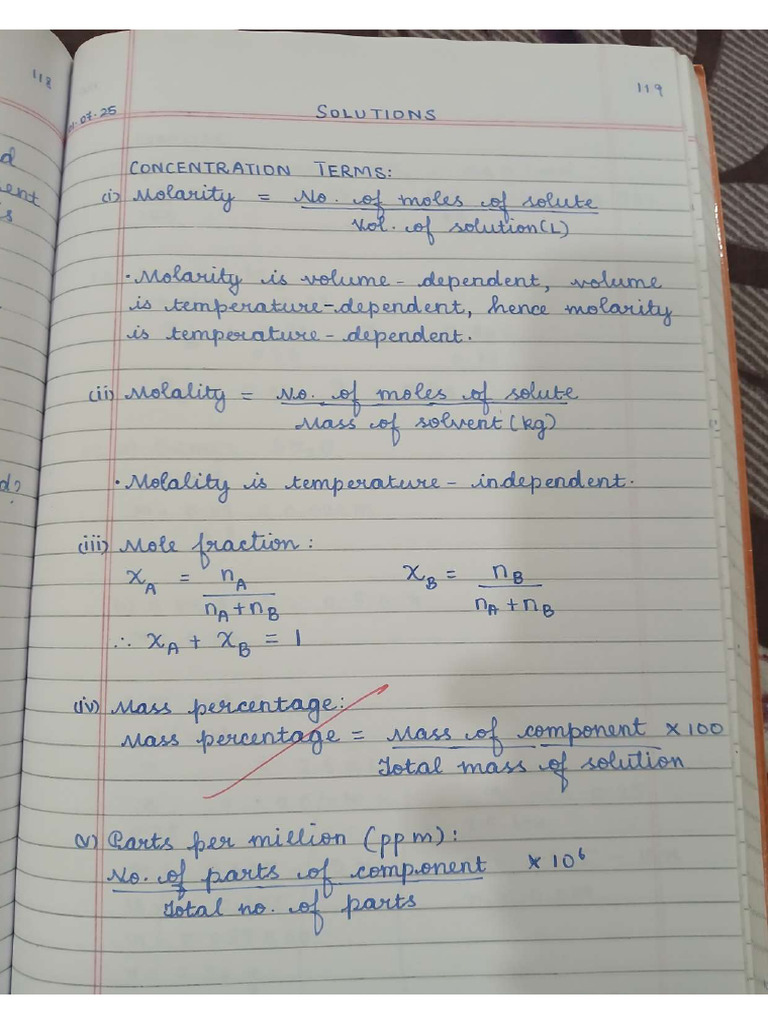 118
119
.07.25
SOLUTIONS
CONCENTRATION TERMS:
(i) Molarity = No. of moles of solute
Vol. of solution(L)
• Molarity is volume-dependent, volume
is temperature-dependent, hence molarity
is temperature-dependent.
(ii) Molality = No. of moles of solute
Mass of solvent (kg)
• Molality is temperature-independent.
(iii) Mole fraction:
x_A = n_A / (n_A + n_B) x_B = n_B / (n_A + n_B)
∴ x_A + x_B = 1
(iv) Mass percentage:
Mass percentage = Mass of component × 100
Total mass of solution
(v) Parts per million (ppm):
No. of parts of component × 10⁶
Total no. of parts